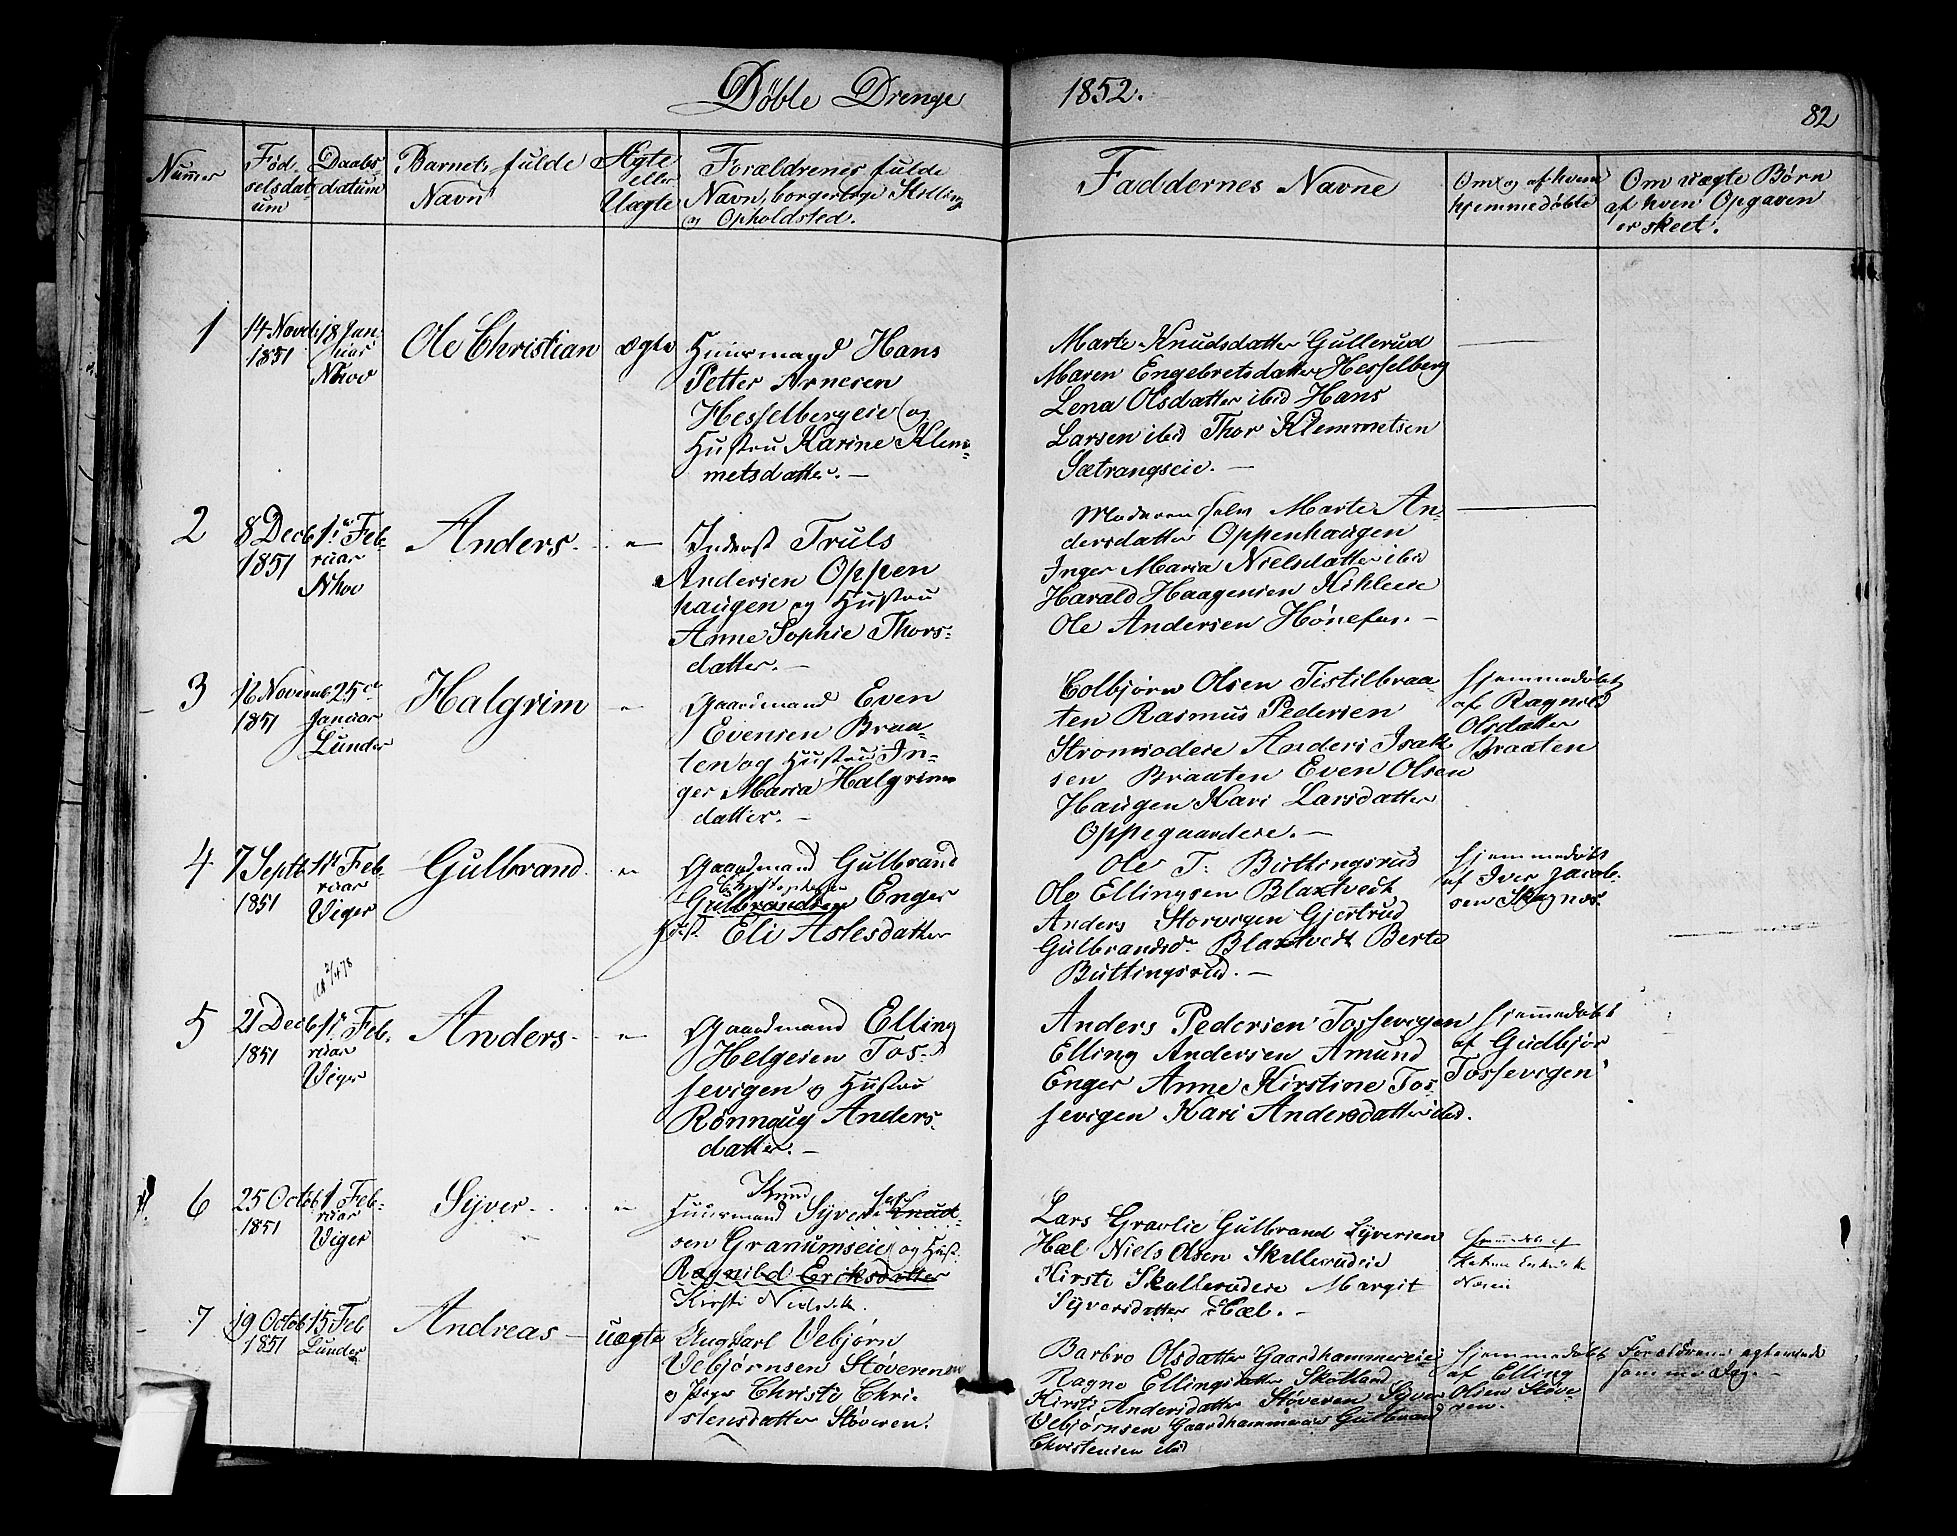 Døbte Drenge 1852.
82
Numer
Fød-
selsdat
um
Daabs
datum
Barnets fulde
Navn
Ægte
eller
Uægte
Forældrenes fulde
Navn, borgerlige Stilling
og Opholdsted.
Faddernes Navne
Om og af hvem
hjemmedøbte
Om uægte Børn
af hvem Opgaven
er skeet.
1
14 Noveb
1851
18 Jan-
uar
Nhov
Ole Christian
ægte
Huusmand Hans
Petter Arnesen
Hesselbergeie og
Hustru Karine Klem-
metsdatter. —
Marte Knudsdatter Gullerud
Maren Engebretsdatter Hesselberg
Lena Olsdatter ibid Hans
Larsen ibid Thor Klemmetsen
Sætrangseie. —
2
8 Decb
1851
1ste Feb-
ruar
Nhov
Anders
— " —
Inderst Truls
Andersen Oppen
haugen og Hustru
Anne Sophie Thors-
datter. —
Moderen selv Marte An-
dersdatter Oppenhaugen
Inger Maria Nielsdatter ibid
Harald Haagensen Kihleeie
Ole Andersen Hønefos. —
3
16 Novemb
1851
25de
Januar
Lunder
Halgrim
— " —
Gaardmand Even
Evensen Braa-
ten og Hustru In-
ger Maria Halgrims
datter. —
Colbjørn Olsen Tistilbraa-
ten Rasmus Pedersen
Stromsodeie Anders Isak
sen Braaten Even Olsen
Haugen Kari Larsdatter
Oppegaardeie. —
Hjemmedøbt
af Ragnild
Olsdatter
Braaten
4
7 Septb
1851
1ste Feb-
ruar
Viger
Gulbrand
— " —
Gaardmand Gulbrand
Christophersen
Gulbrandsen Enger
Hust. Eli Aslesdatter
Ole T. Buttingsrud
Ole Ellingsen Blaxtvedt
Anders Storvigen Gjertrud
Gulbrandsdr Blaxtvedt Berte
Buttingsrud. —
Hjemmedøbt
af Iver Jacob-
sen Skagnæs
5
21 Decb
1851
1ste Feb.
ruar
Viger
Anders
— " —
Gaardmand Elling
Helgesen Tos-
sevigen og Hustru
Rønnaug Anders-
datter. —
Anders Pedersen Tossevigen
Elling Andersen Amund
Enger Anne Kirstine Tos
sevigen Kari Andersdatter ibid.
Hjemmedøbt
af Gudbjør
Tossevigen
6
25 Octob
1851
1 Feb-
ruar
Viger
Syver
— " —
Knud
Huusmand Syver Knud-
sen Granumseie og Hust.
Ragnild Eriksdatter
Kirsti Nielsdtr.
Lars Gravlie Gulbrand Syversen
Hæl Niels Olsen Skollerudeie
Kirsti Skollerudeie Margit
Syversdatter Hæl. —
Hjemmedøbt af
7
19 Octob
1851
15 Feb
Lunder
Andreas
uægte
Ungkarl Vebjørn
Vebjørnsen Støveren
og Pige Christi Chri-
stensdatter Støveren.
Barbro Olsdatter Gaardhammereie
Ragne Ellingsdatter Skotland
Kirsti Andersdatter Støveren Syver
Vebjørnsen Gaardhammereie Gulbrand
Christensen ibid
Hjemmedøbt
af Elling
Olsen Støve-
ren.
Forældrene egteviede
samme Dag. —